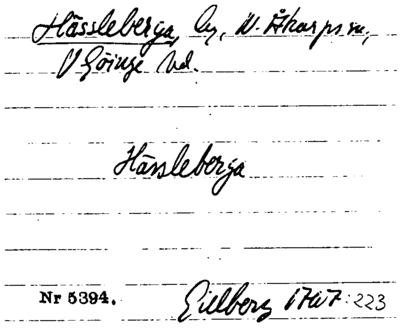 Hässleberga, by, N. Åkarps sn,
V Göinge hd.
Hässleberga
Nr 5394. Gillberg 1767:223